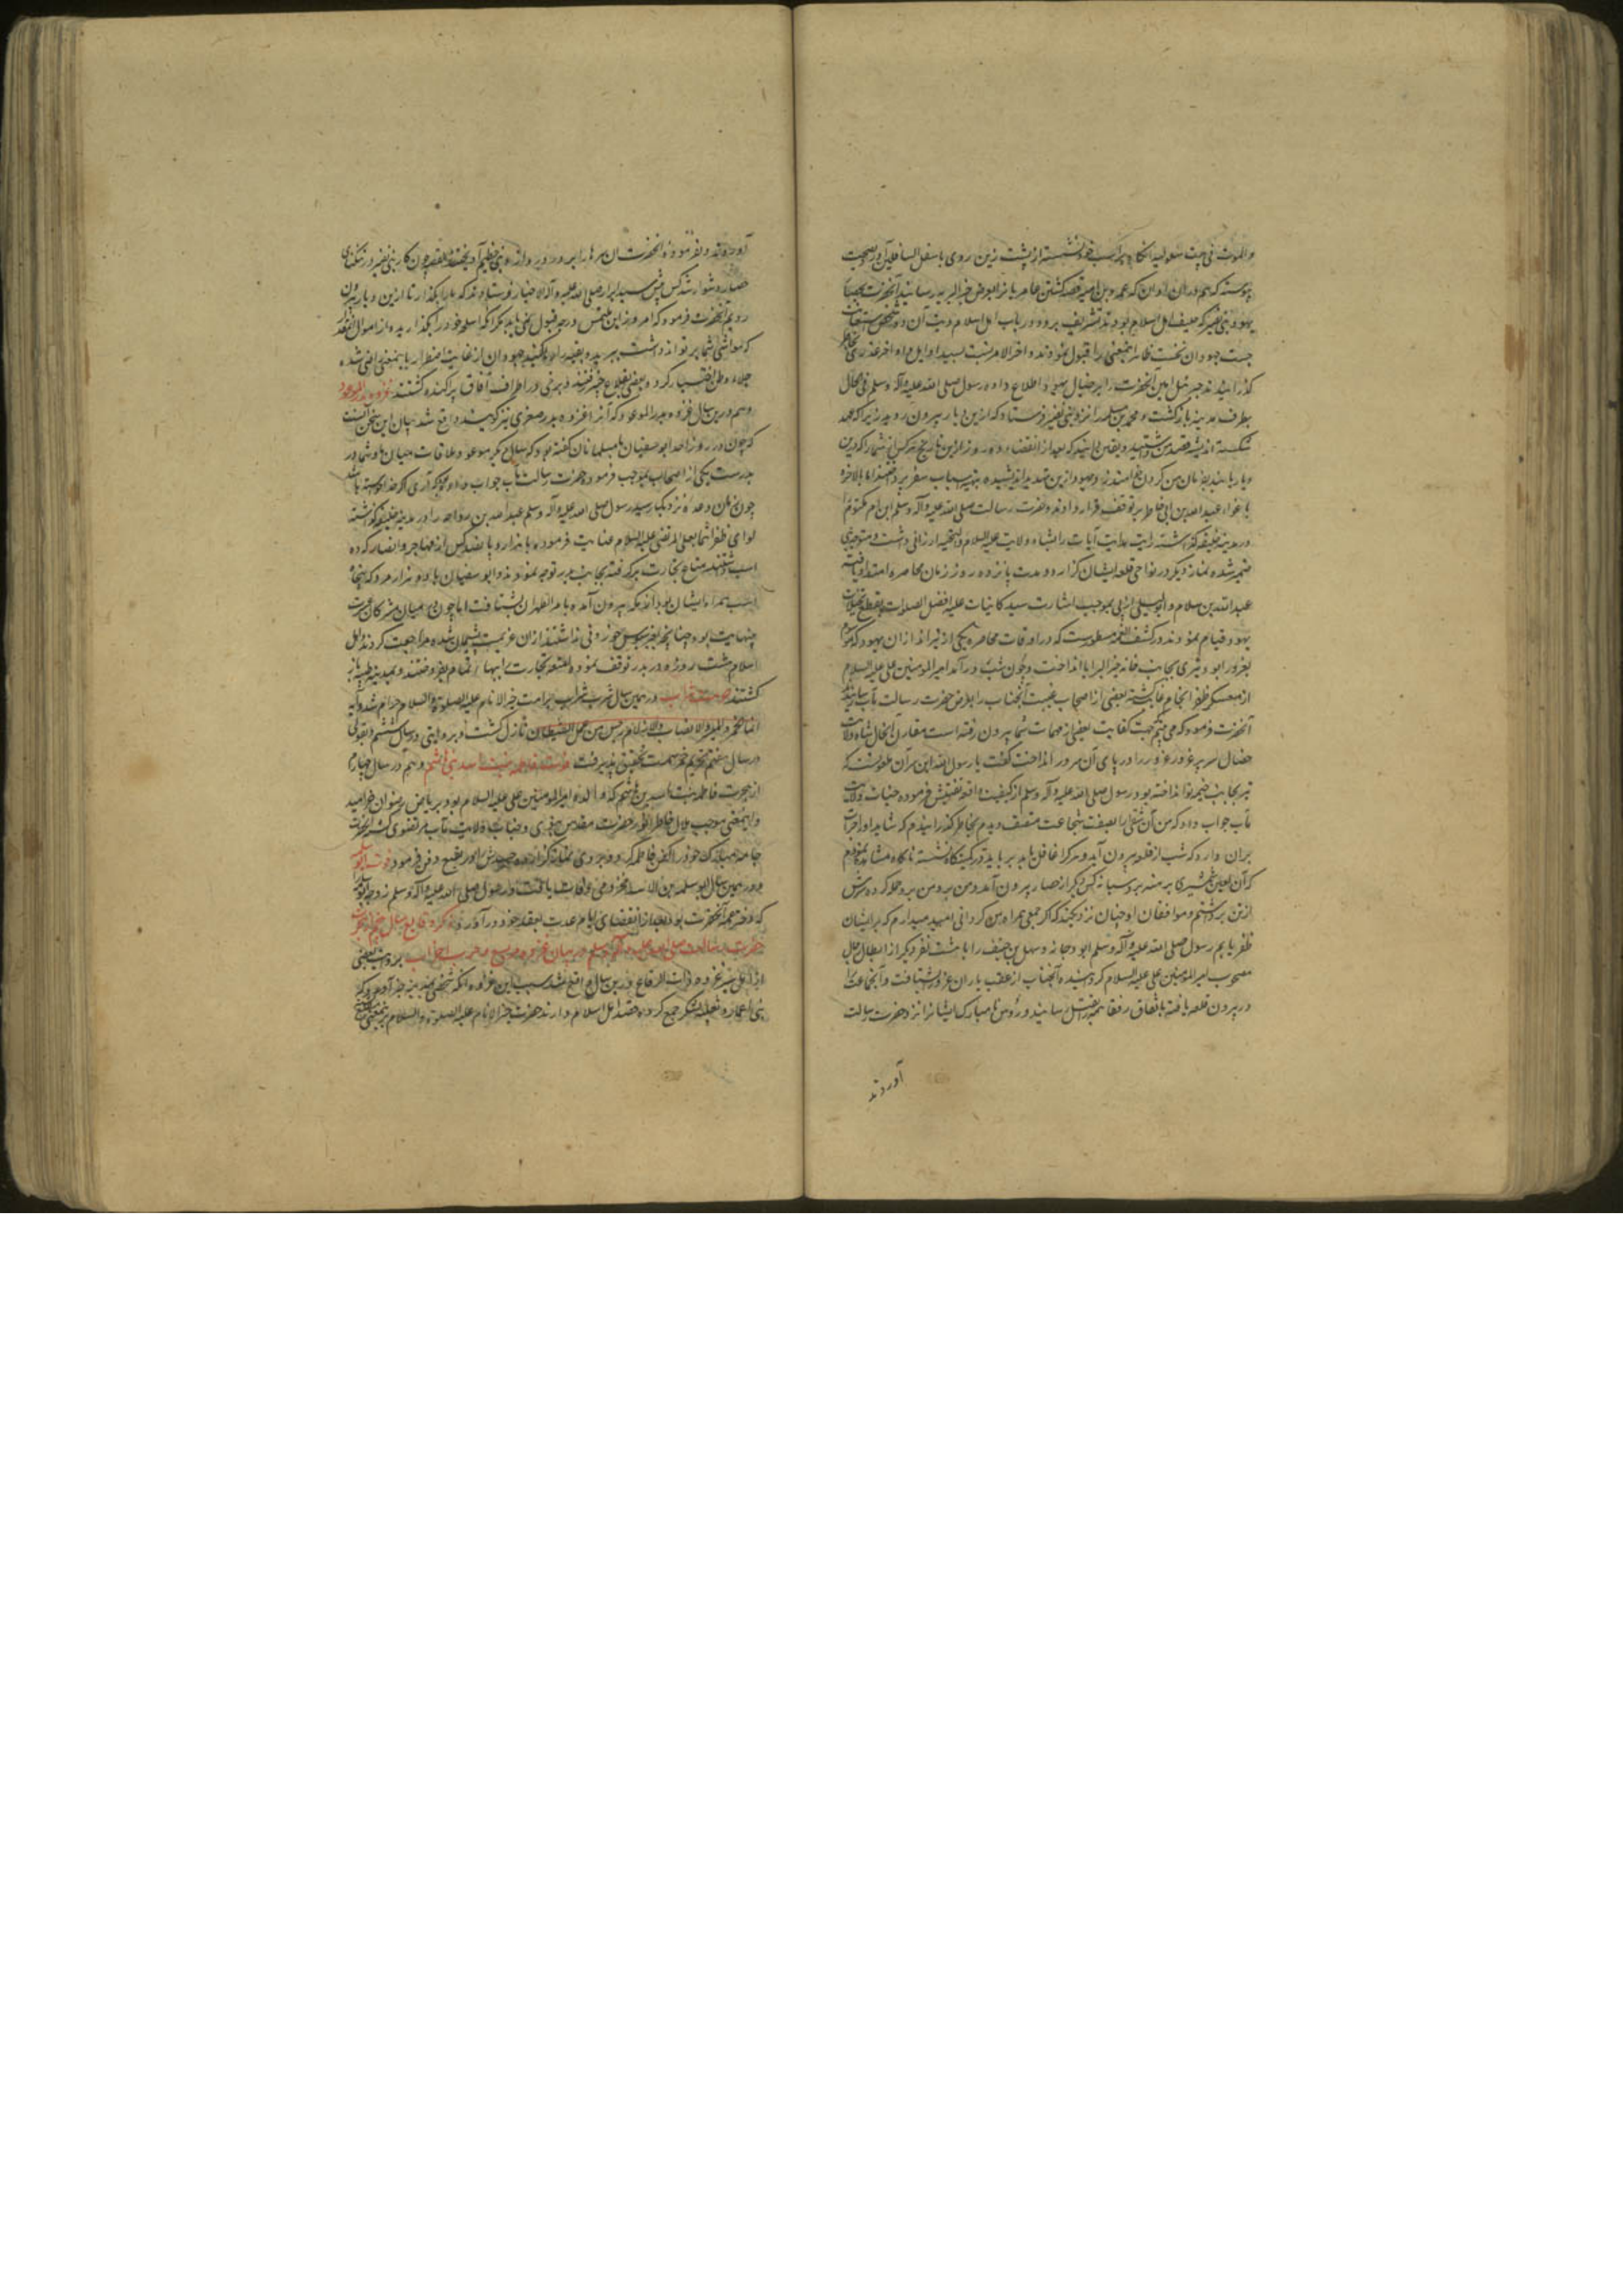 والموت فی بیت سلولیه آنگاه بر اسب خود نشسته از پشت زین روی باسفل السافلین آورد بصحت
پیوسته که هم در آن اوان که عمرو بن امیه قصه کشتن عامریان را بعرض خیر البریه رسانید آنحضرت
یهود بنی نضیر که حلیف اهل اسلام بودند تشریف برده در باب دیت آن دو شخص
جست جهودان نخست ظاهرا اینمعنی را قبول نمودند و آخر الامر نسبت بسید اوایل و اواخر غدری بخاطر
گذرانیدند جبرئیل امین آنحضرت را بر خیال یهود اطلاع داده رسول صلی الله علیه و آله وسلم فی الحال
بطرف مدینه بازگشت و محمد بن مسلمه را نزد بنی نضیر فرستاد که ازین دیار بیرون روید زیرا که عهد
شکسته اندیشه قصد من داشتید و یقین دانید که بعد از انقضاء ده روز ازین تاریخ هر کس از شما را که درین
دیار یابند بفرمان من گردن زنند و یهود ازین تهدید اندیشیده بتهیه اسباب سفر پرداختند اما بالاخره
باغواء عبدالله بن ابی خاطر بر توقف قرار دادند و حضرت رسالت صلی الله علیه و آله وسلم ابن ام مکتوم را
در مدینه خلیفه گذاشته رایت هدایت آیات را بشاه ولایت علیه السلام و التحیه ارزانی داشت و متوجه بنی
نضیر شده نماز دیگر در نواحی قلعه ایشان گزارد و مدت پانزده روز زمان محاصره امتداد یافته
عبدالله بن سلام و ابولیلی بموجب اشارت سید کاینات علیه افضل الصلوات بقطع نخیلات
یهود قیام نمودند و در کشف الغمه مسطورست که در اوقات محاصره یکی از تیراندازان یهود که
بغرور بود تیری بجانب خانه خیر البرایا انداخت و چون شب درآمد امیر المومنین علی علیه السلام
از معسکر ظفر انجام غایب گشته بعضی از اصحاب غیبت آنجناب را بعرض حضرت رسالت مآب رسانیدند
آنحضرت فرمود که می بینم جهت کفایت بعضی از مهمات شما بیرون رفته است مقارن آنحال شاه ولایت
خصال سر پر غرور غزور را در پای آن سرور انداخت گفت یا رسول الله این سر آن ملعونست که
تیر بجانب خیمه تو انداخته بود رسول صلی الله علیه و آله وسلم از کیفیت واقعه تفتیش فرموده جناب ولایت
مآب جواب داد که من آن شقی را بصفت شجاعت متصف دیدم بخاطر گذرانیدم که شاید او را جرات
بران دارد که شب از قلعه بیرون آید و هر کرا غافل یابد برباید در کمینگاه نشسته ناگاه مشاهده نمودم
که آن لعین شمشیری برهنه بر دست با نه کس دیگر از حصار بیرون آمد و من بر وی حمله کرده سرش
از تن برداشتم و موافقان او چنان نزدیکند که اگر جمعی همراه من گردانی امید میدارم که بر ایشان
ظفر یابم رسول صلی الله علیه و آله وسلم ابودجانه و سهل بن حنیف را با هشت نفر دیگر از ابطال رجال
مصحوب امیر المومنین علی علیه السلام گردانیده آنجناب از عقب یاران غزور شتافت و آنجماعت را
در بیرون قلعه یافته باتفاق رفقا همه را بقتل رسانید و رؤس نامبارک ایشانرا نزد حضرت رسالت
آوردند
آوردند و بفرموده آنحضرت آن سرها را بر در دروازه بنی آویختند القصه چون کار بنی نضیر در تنگنای
حصار دشوار شد کس پیش سید ابرار صلی الله علیه و آله الاخیار فرستادند که ما را بگذار تا ازین دیار بیرون
رویم آنحضرت فرمود که امروز این ملتمس درجه قبول نمی یابد مگر آنکه اسلحه خود را بگذارید و از اموال آنقدر
که مواشی شما بر تواند داشت ببرید و بقیه را بگذارید جهودان از غایت اضطرار باینمعنی راضی شده
جلاء وطن اختیار کردند و بعضی بقلاع خیبر رفتند و برخی در اطراف آفاق پراکنده گشتند غزوه بدر الموعد
و هم درین سال غزوه بدر الموعد که آنرا غزوه بدر صغری نیز گویند واقع شد بیان این سخن آنست
که چون در روز احد ابوسفیان با مسلمانان گفته بود که سال دیگر موعد ملاقات میان ما و شما در
بدرست یکی از اصحاب بموجب فرموده حضرت رسالت مآب جواب داده بود که آری اگر خدا خواسته باشد
چون زمان وعده نزدیک رسید رسول صلی الله علیه و آله وسلم عبدالله بن رواحه را در مدینه خلیفه گذاشته
لوای ظفر انتما بعلی المرتضی علیه السلام عنایت فرموده با هزار و پانصد کس از مهاجر و انصار که ده
اسب داشتند متاع تجارت برگرفته بجانب بدر توجه نمودند و ابوسفیان با دو هزار مرد که پنجاه
اسب همراه ایشان بود از مکه بیرون آمده تا مر الظهران بشتافت اما چون در میان مشرکان عسرت
بینهایت بود چنانچه بغیر سویق خوردنی نداشتند از آن عزیمت پشیمان شده مراجعت کردند و اهل
اسلام هشت روز در بدر توقف نموده امتعه تجارت را ببهاء تمام بفروختند و بمدینه طیبه باز
گشتند حرمت شراب در همین سال شرب شراب بر امت خیر الانام علیه الصلوة و السلام حرام شد و آیه
انما الخمر و المیسر و الانصاب و الازلام رجس من عمل الشیطان نازل گشت و بروایتی در سال ششم و بقولی
در سال هفتم تحریم خمر سمت تحقیق پذیرفت فوت فاطمه بنت اسد بن هاشم و هم در سال چهارم
از هجرت فاطمه بنت اسد بن هاشم که والده امیر المومنین علی علیه السلام بود بریاض رضوان خرامید
و اینمعنی موجب ملال خاطر انور حضرت مقدس نبوی و جناب ولایت مآب مرتضوی گشته آنحضرت
جامه مبارک خود را کفن فاطمه کرد و بر وی نماز گزارده جسدش را در بقیع دفن فرمود فوت ابو سلمه
و در همین سال ابوسلمه بن عبدالاسد مخزومی وفات یافت و رسول صلی الله علیه و آله وسلم زوجه ابو سلمه
که دختر عمه آنحضرت بود بعد از انقضای ایام عدت بعقد خود درآورد ذکر وقایع سال پنجم از هجرت
حضرت رسالت صلی الله علیه و آله وسلم و بیان غزوه مریسیع و حرب احزاب بروایت بعضی
از اهل سیر غزوه ذات الرقاع درین سال واقع شد سبب این غزوه آنکه شخصی بمدینه خبر آورد که
بنی انمار و ثعلبه لشکر جمع کرده قصد اهل اسلام دارند حضرت خیر الانام علیه الصلوة و السلام